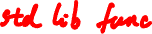 std lib func